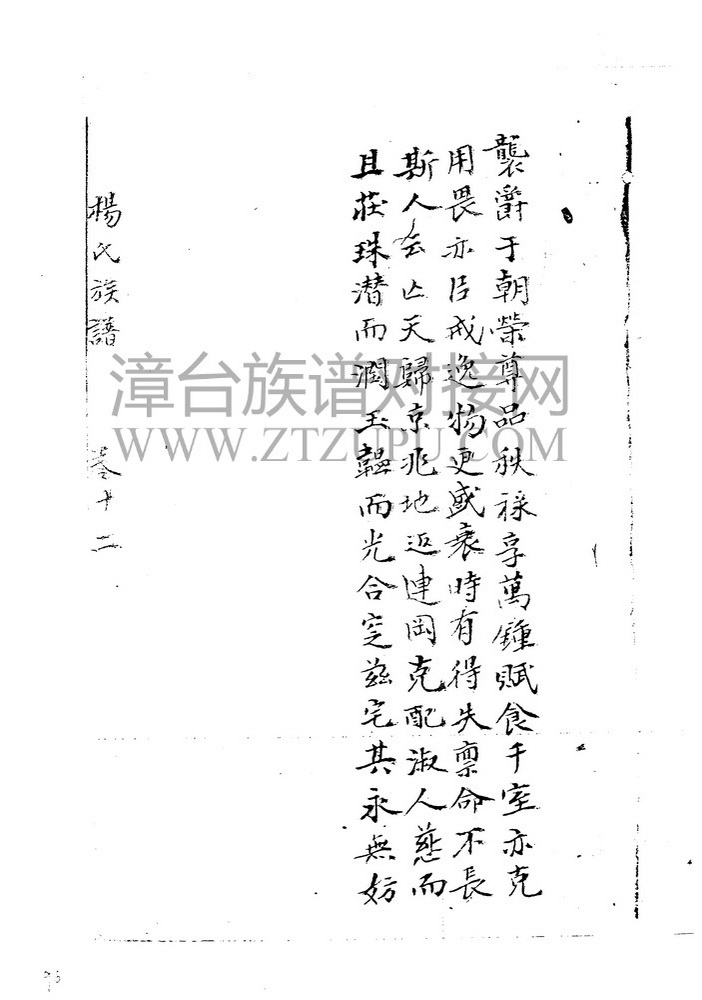 襲爵于朝榮尊品秩祿享萬鍾賦食千室亦克
用畏亦臣戒逸物更盛衰時有得失禀命不長
斯人云亾天歸京兆地近連岡克配淑人慈而
且莊珠潛而潤玉韞而光合窆茲宅其永無妨
楊氏族譜 卷十二
漳台族谱对接网
WWW.ZTZUPU.COM